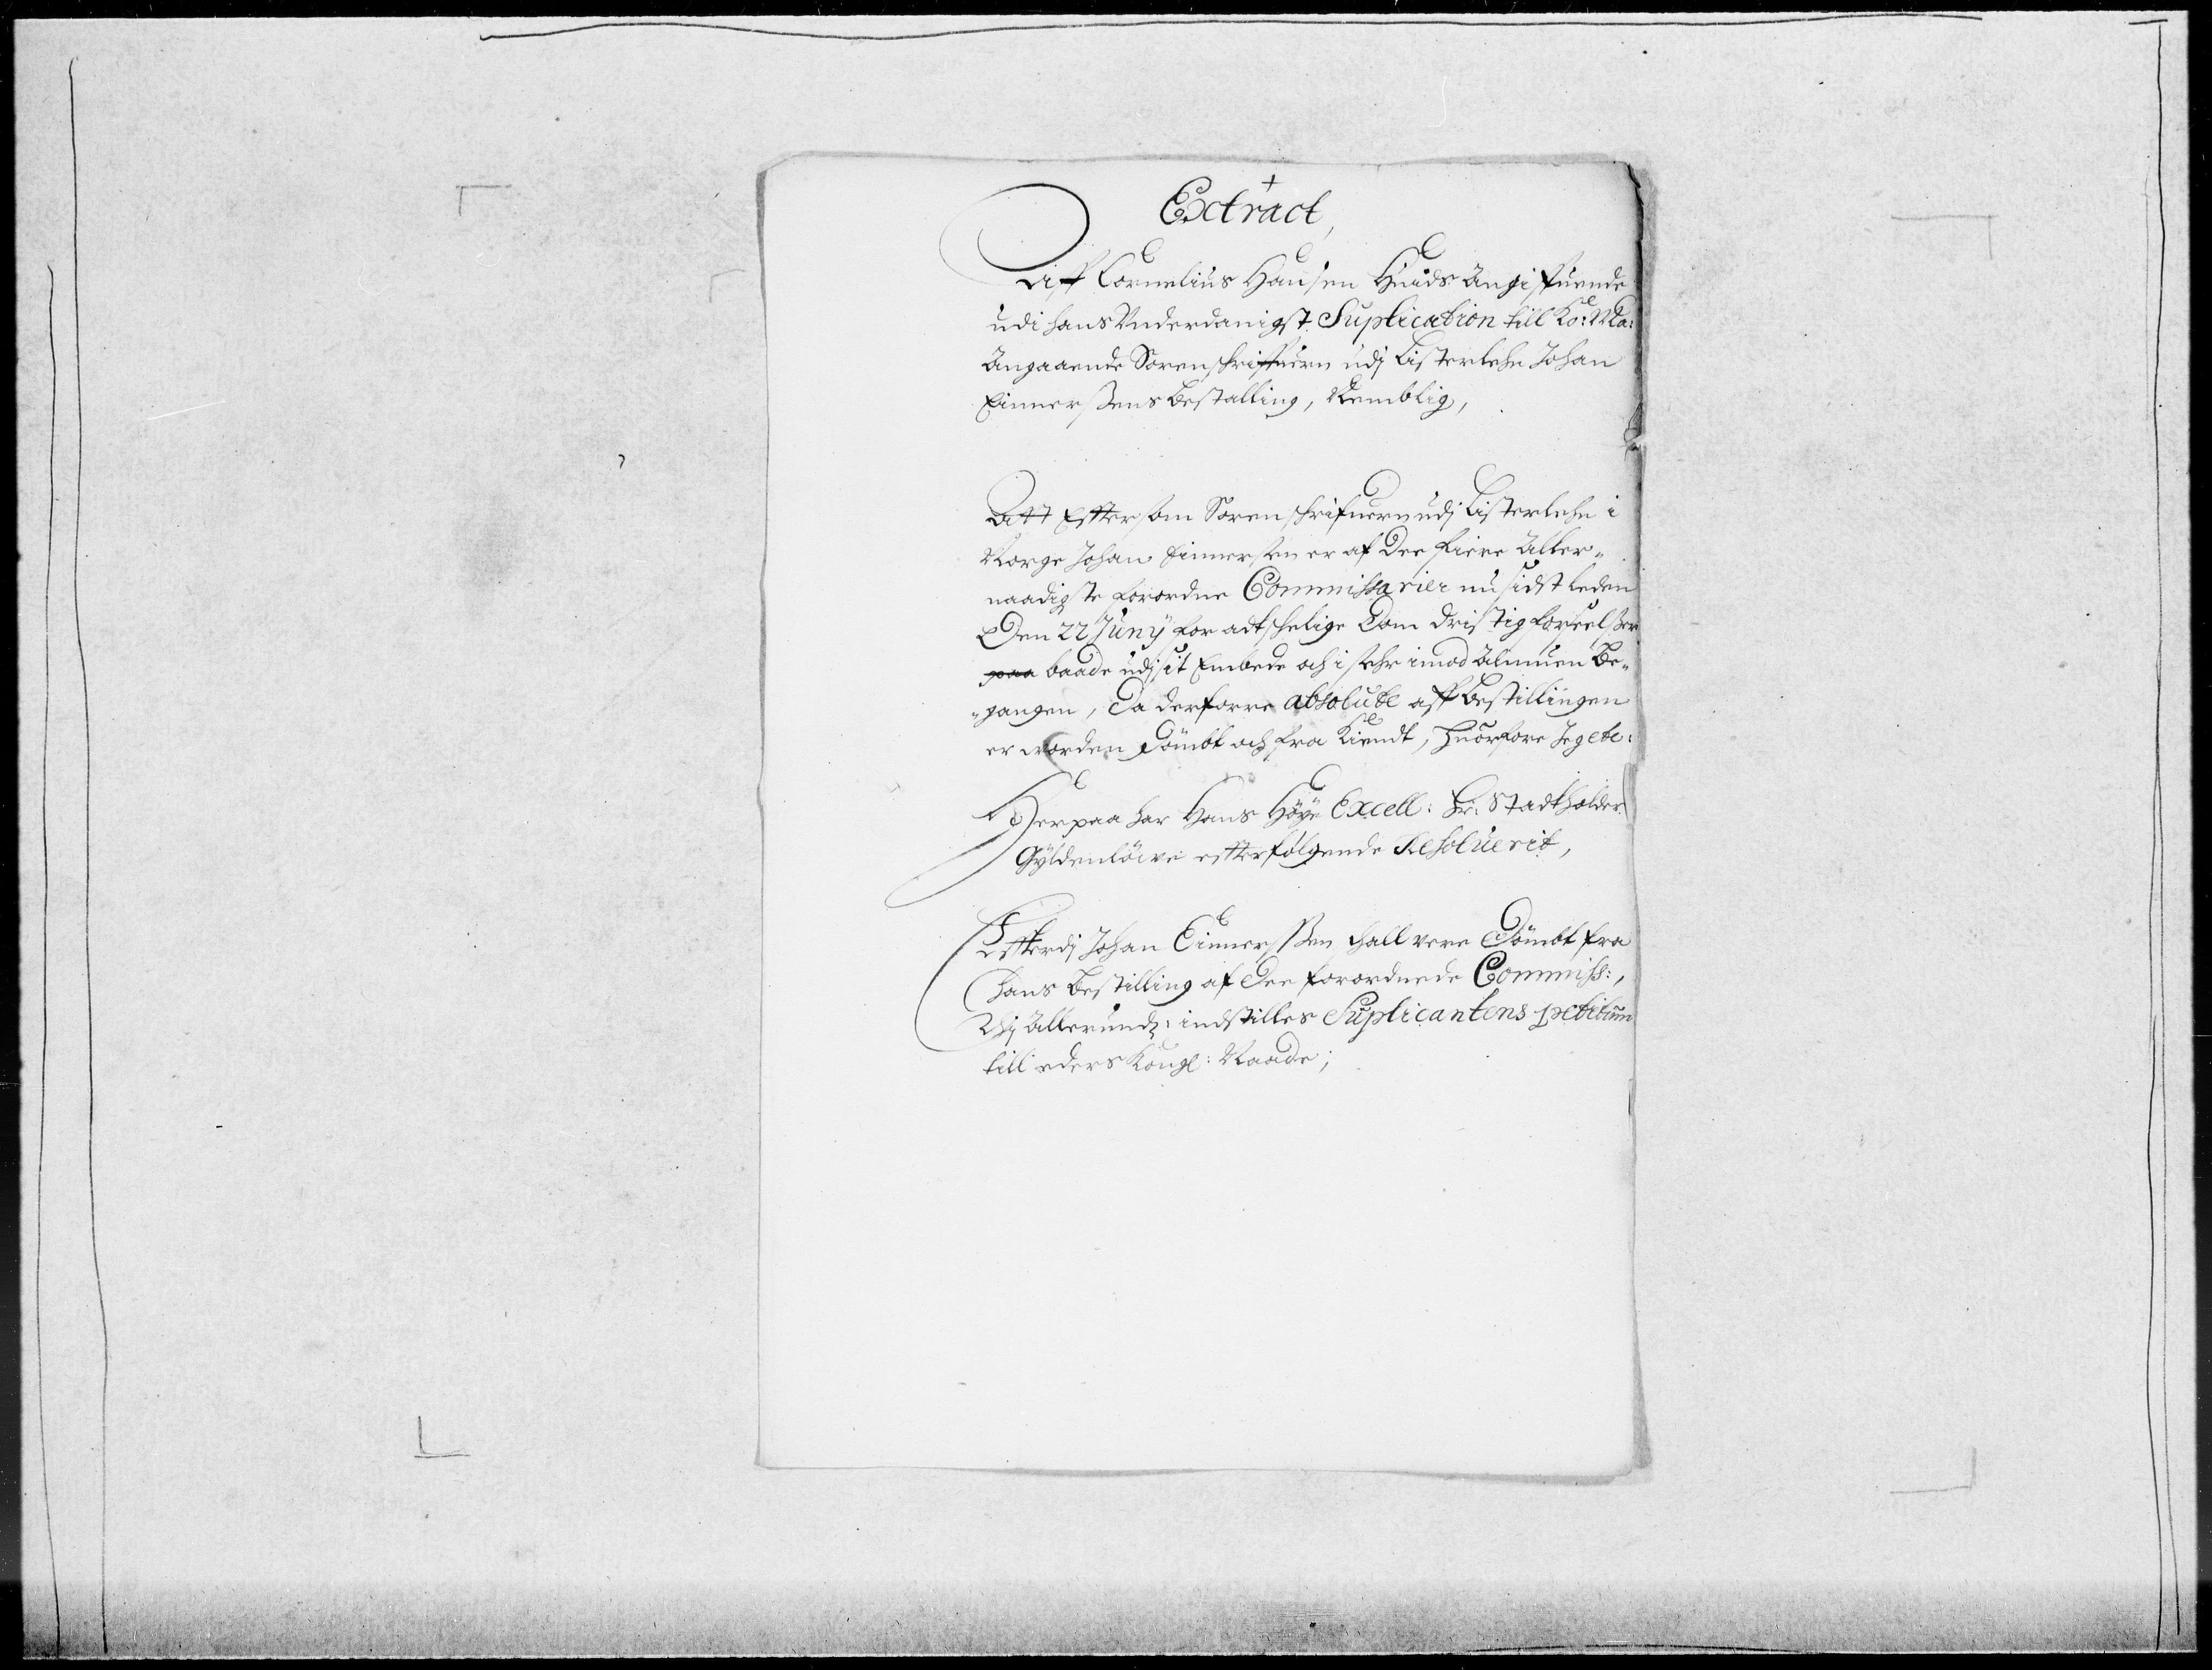 +
Extract,
Aff Cornelius Hansen Huids Angiffuende
udi hans Underdanigst Suplication till Ko: Ma:
Angaaende Sorenskriffuern udj Listerlehn Johan
Einnersßens Bestalling, Nemblig,
Att Effter som Sorenskrifuern udj Listerlehn i
Norge Johan Einnersen er af dee fiere Aller„
naadigste forordne Commissarier nu sidst leden
Den 22 Juny for adtskelige Dom dristig forseelser
baade udj sit Embede och i imod Almuen Be„
„gangen, Da derforre absolute aff Bestillingen
er worden Dömbt och fra Kiendt, huorfore Jeg etc:
Herpaa har Hans Höye Excell: Hr: Stadtholder
Gyldenlöwe effterfölgende Resoluerit,
Effterdj Johan Einnersßen skall vere Dömbt fra
hans Bestilling af dee forordnede Commiss:,
Thj Allerund: indstilles Suplicantens petitum
till eders Kongl: Naade;